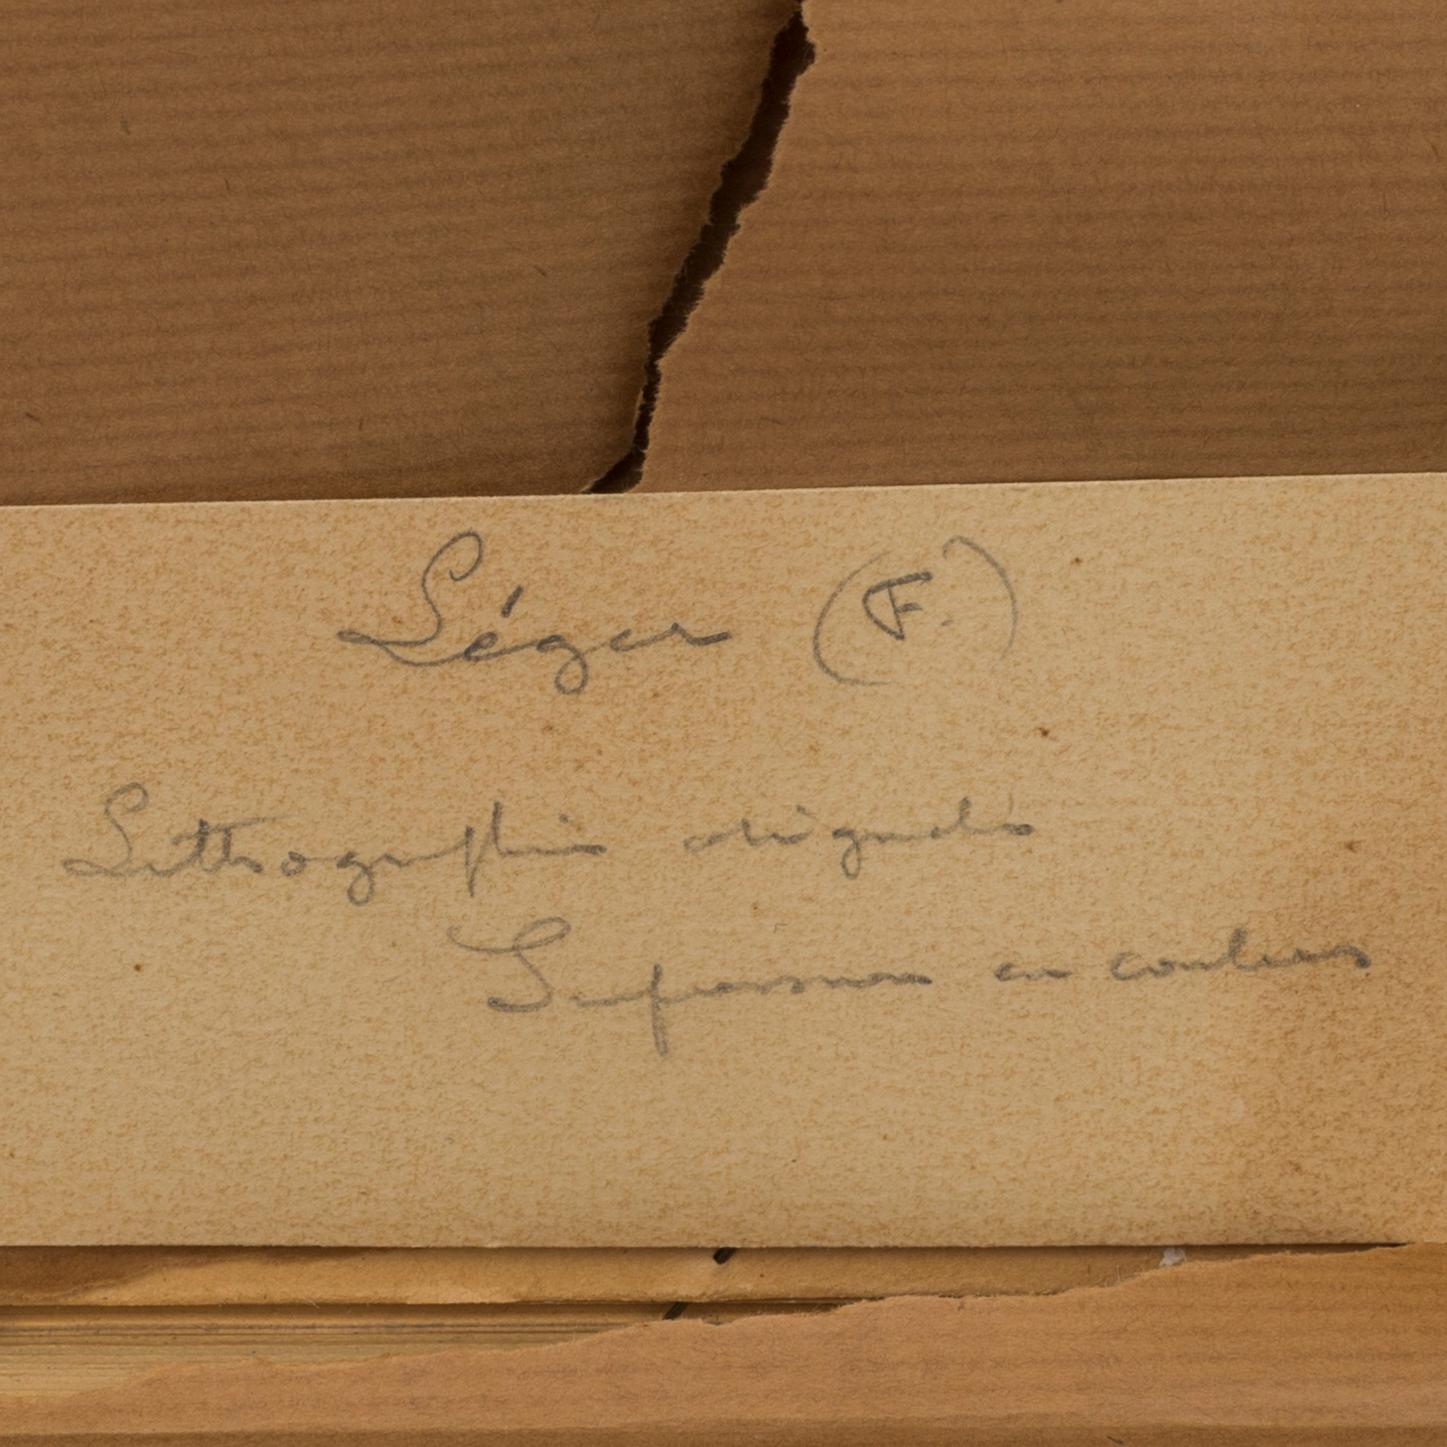 Léger (F.)
Lithographies originales
Impressions en couleurs